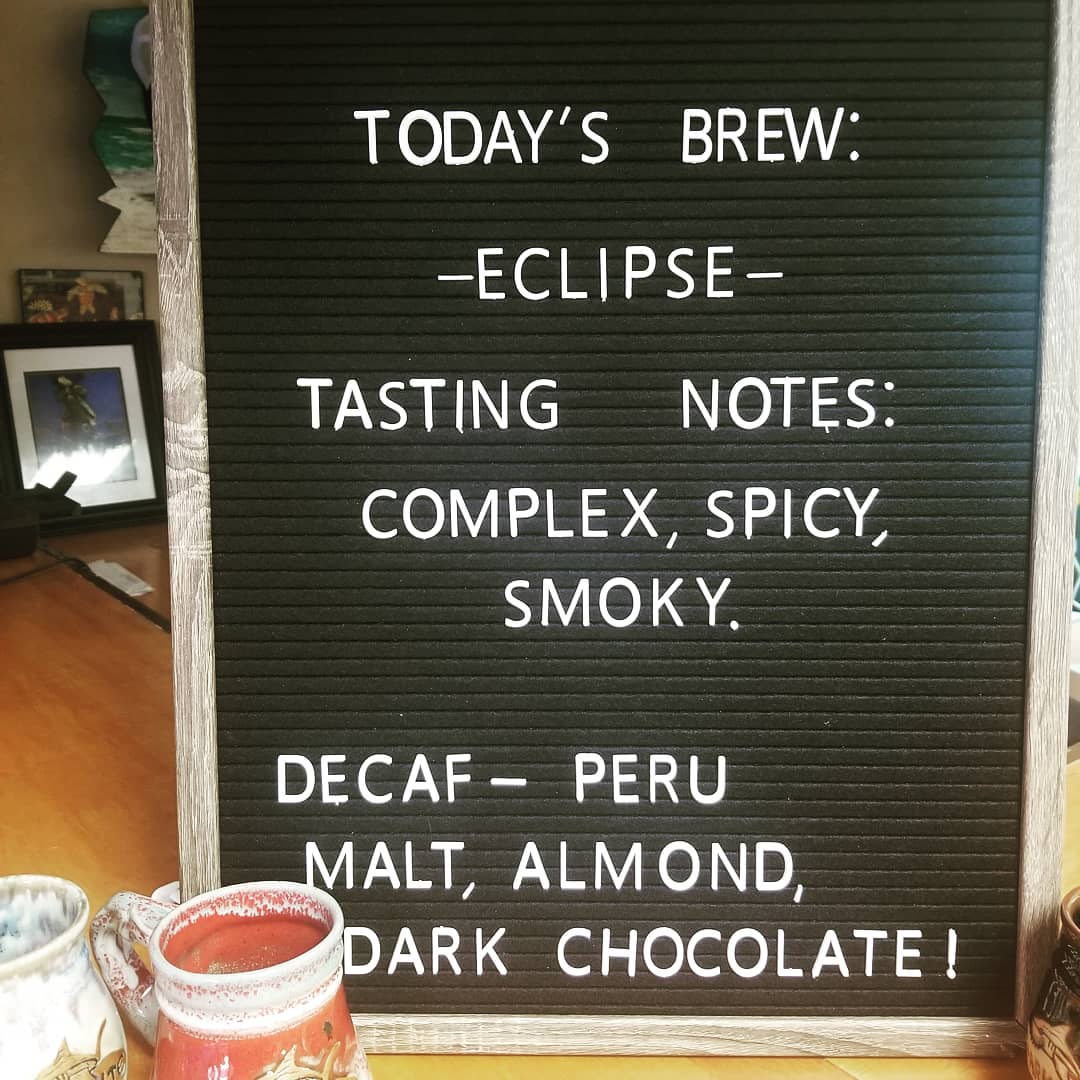 TODAY'S BREW:
–ECLIPSE–
TASTING NOTES:
COMPLEX, SPICY,
SMOKY.
DECAF – PERU
MALT, ALMOND,
DARK CHOCOLATE!